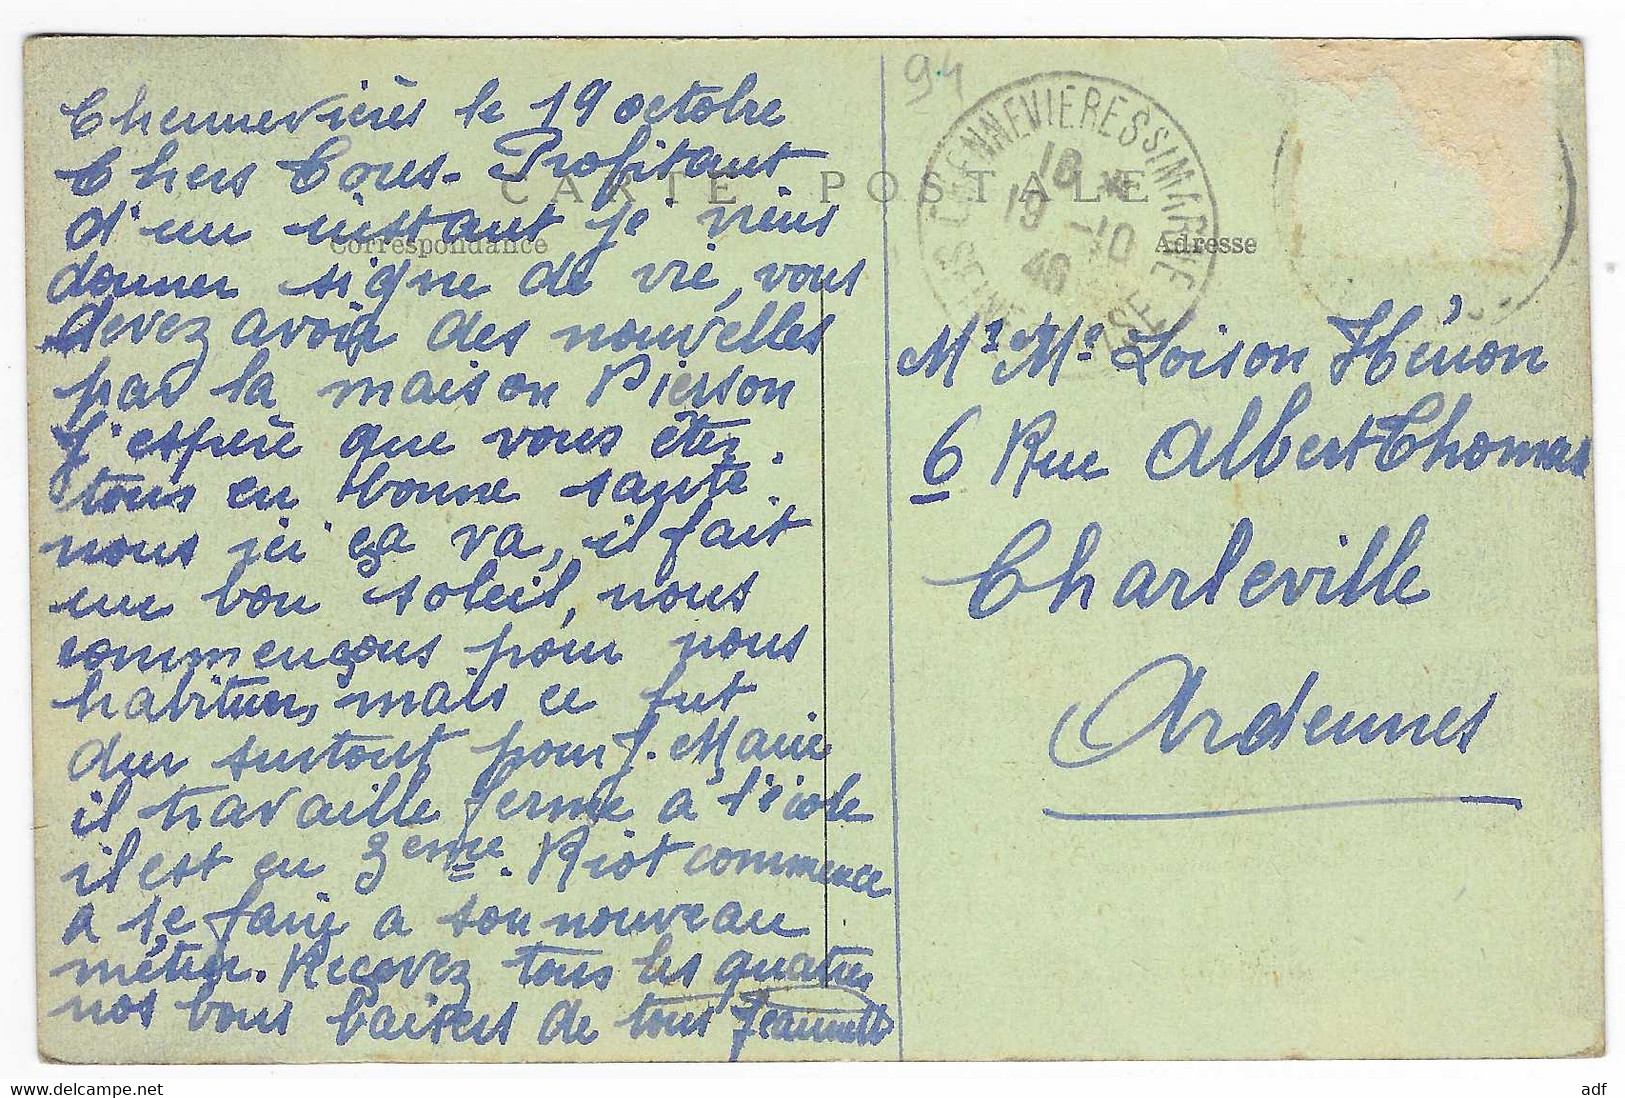 94
CARTE POSTALE
Correspondance
Adresse
CHENNEVIERES S MARNE
18 H
19 -10
46
SEINE ET OISE
Chennevières le 19 octobre
Chers Tous - Profitant
d'un instant je viens
donner signe de vie, vous
devez avoir des nouvelles
par la maison Pierson
J'espère que vous êtes
tous en bonne santé.
nous ici ça va, il fait
un bon soleil, nous
commençons pour nous
habituer, mais ce fut
dur surtout pour J. Marie
il travaille ferme à l'école
il est en 3eme. Riot commence
a se faire a son nouveau
métier. Recevez tous les quatres
nos bons baisers de tous Jeannette
Mr Me Loison Hénon
6 Rue Albert Thomas
Charleville
Ardennes
https://www.delcampe.net
adf